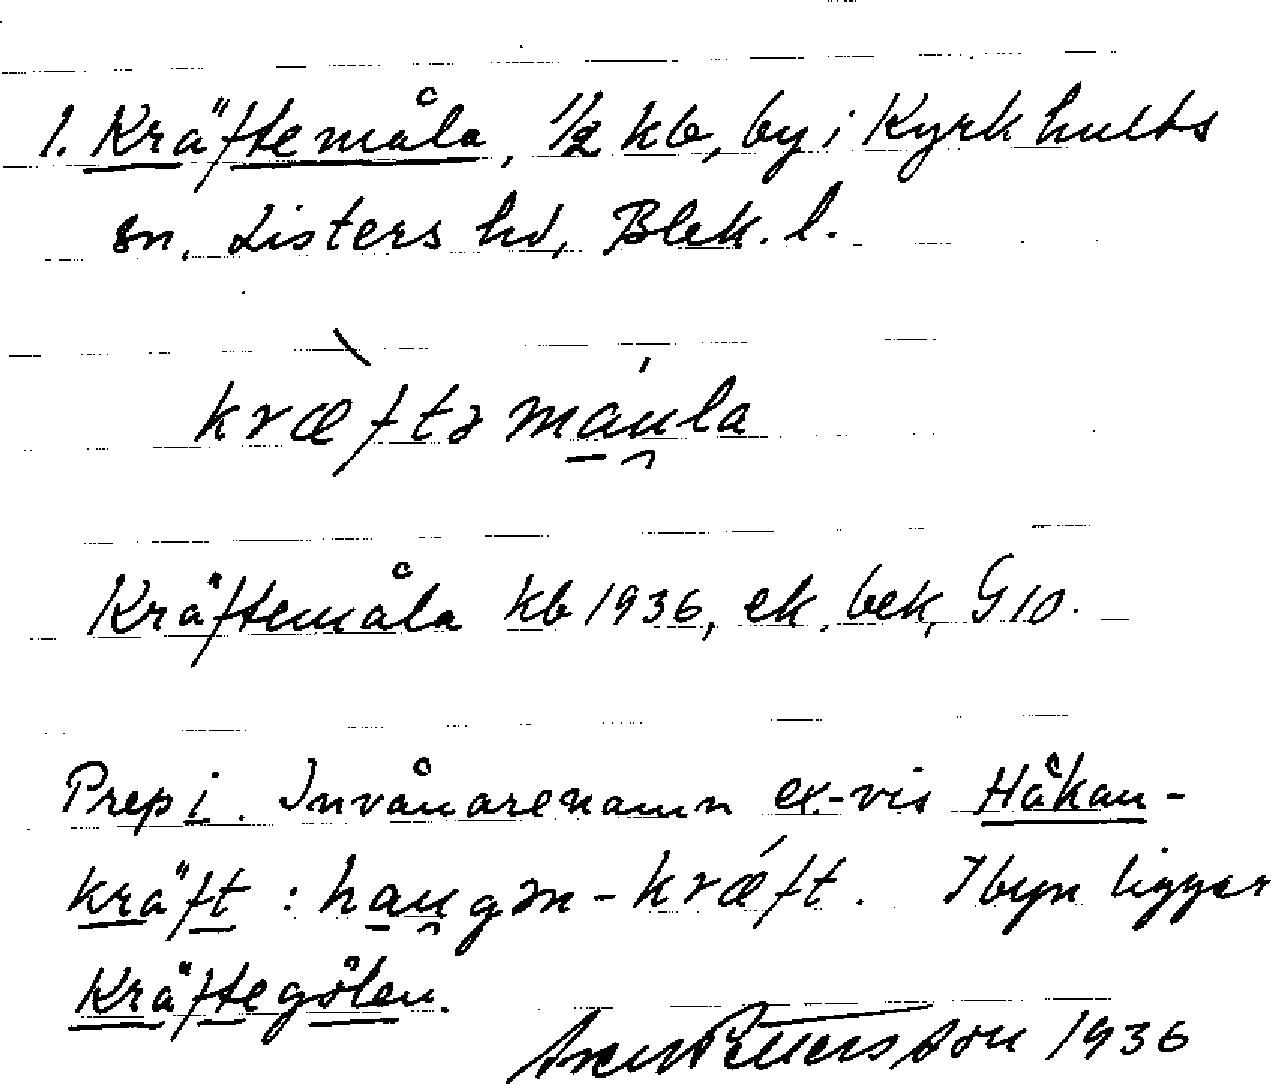 1. Kräftemåla, 1/2 kb, by i Kyrkhults
sn, Listers hd, Blek. l.
kræftəmau̯la
Kräftemåla kb 1936, ek. bek, G 10.
Prep i. Invånarenamn ex.-vis Håkan-
kräft : hau̯gən-kræft. I byn ligger
Kräftegölen.
Axel Pettersson 1936